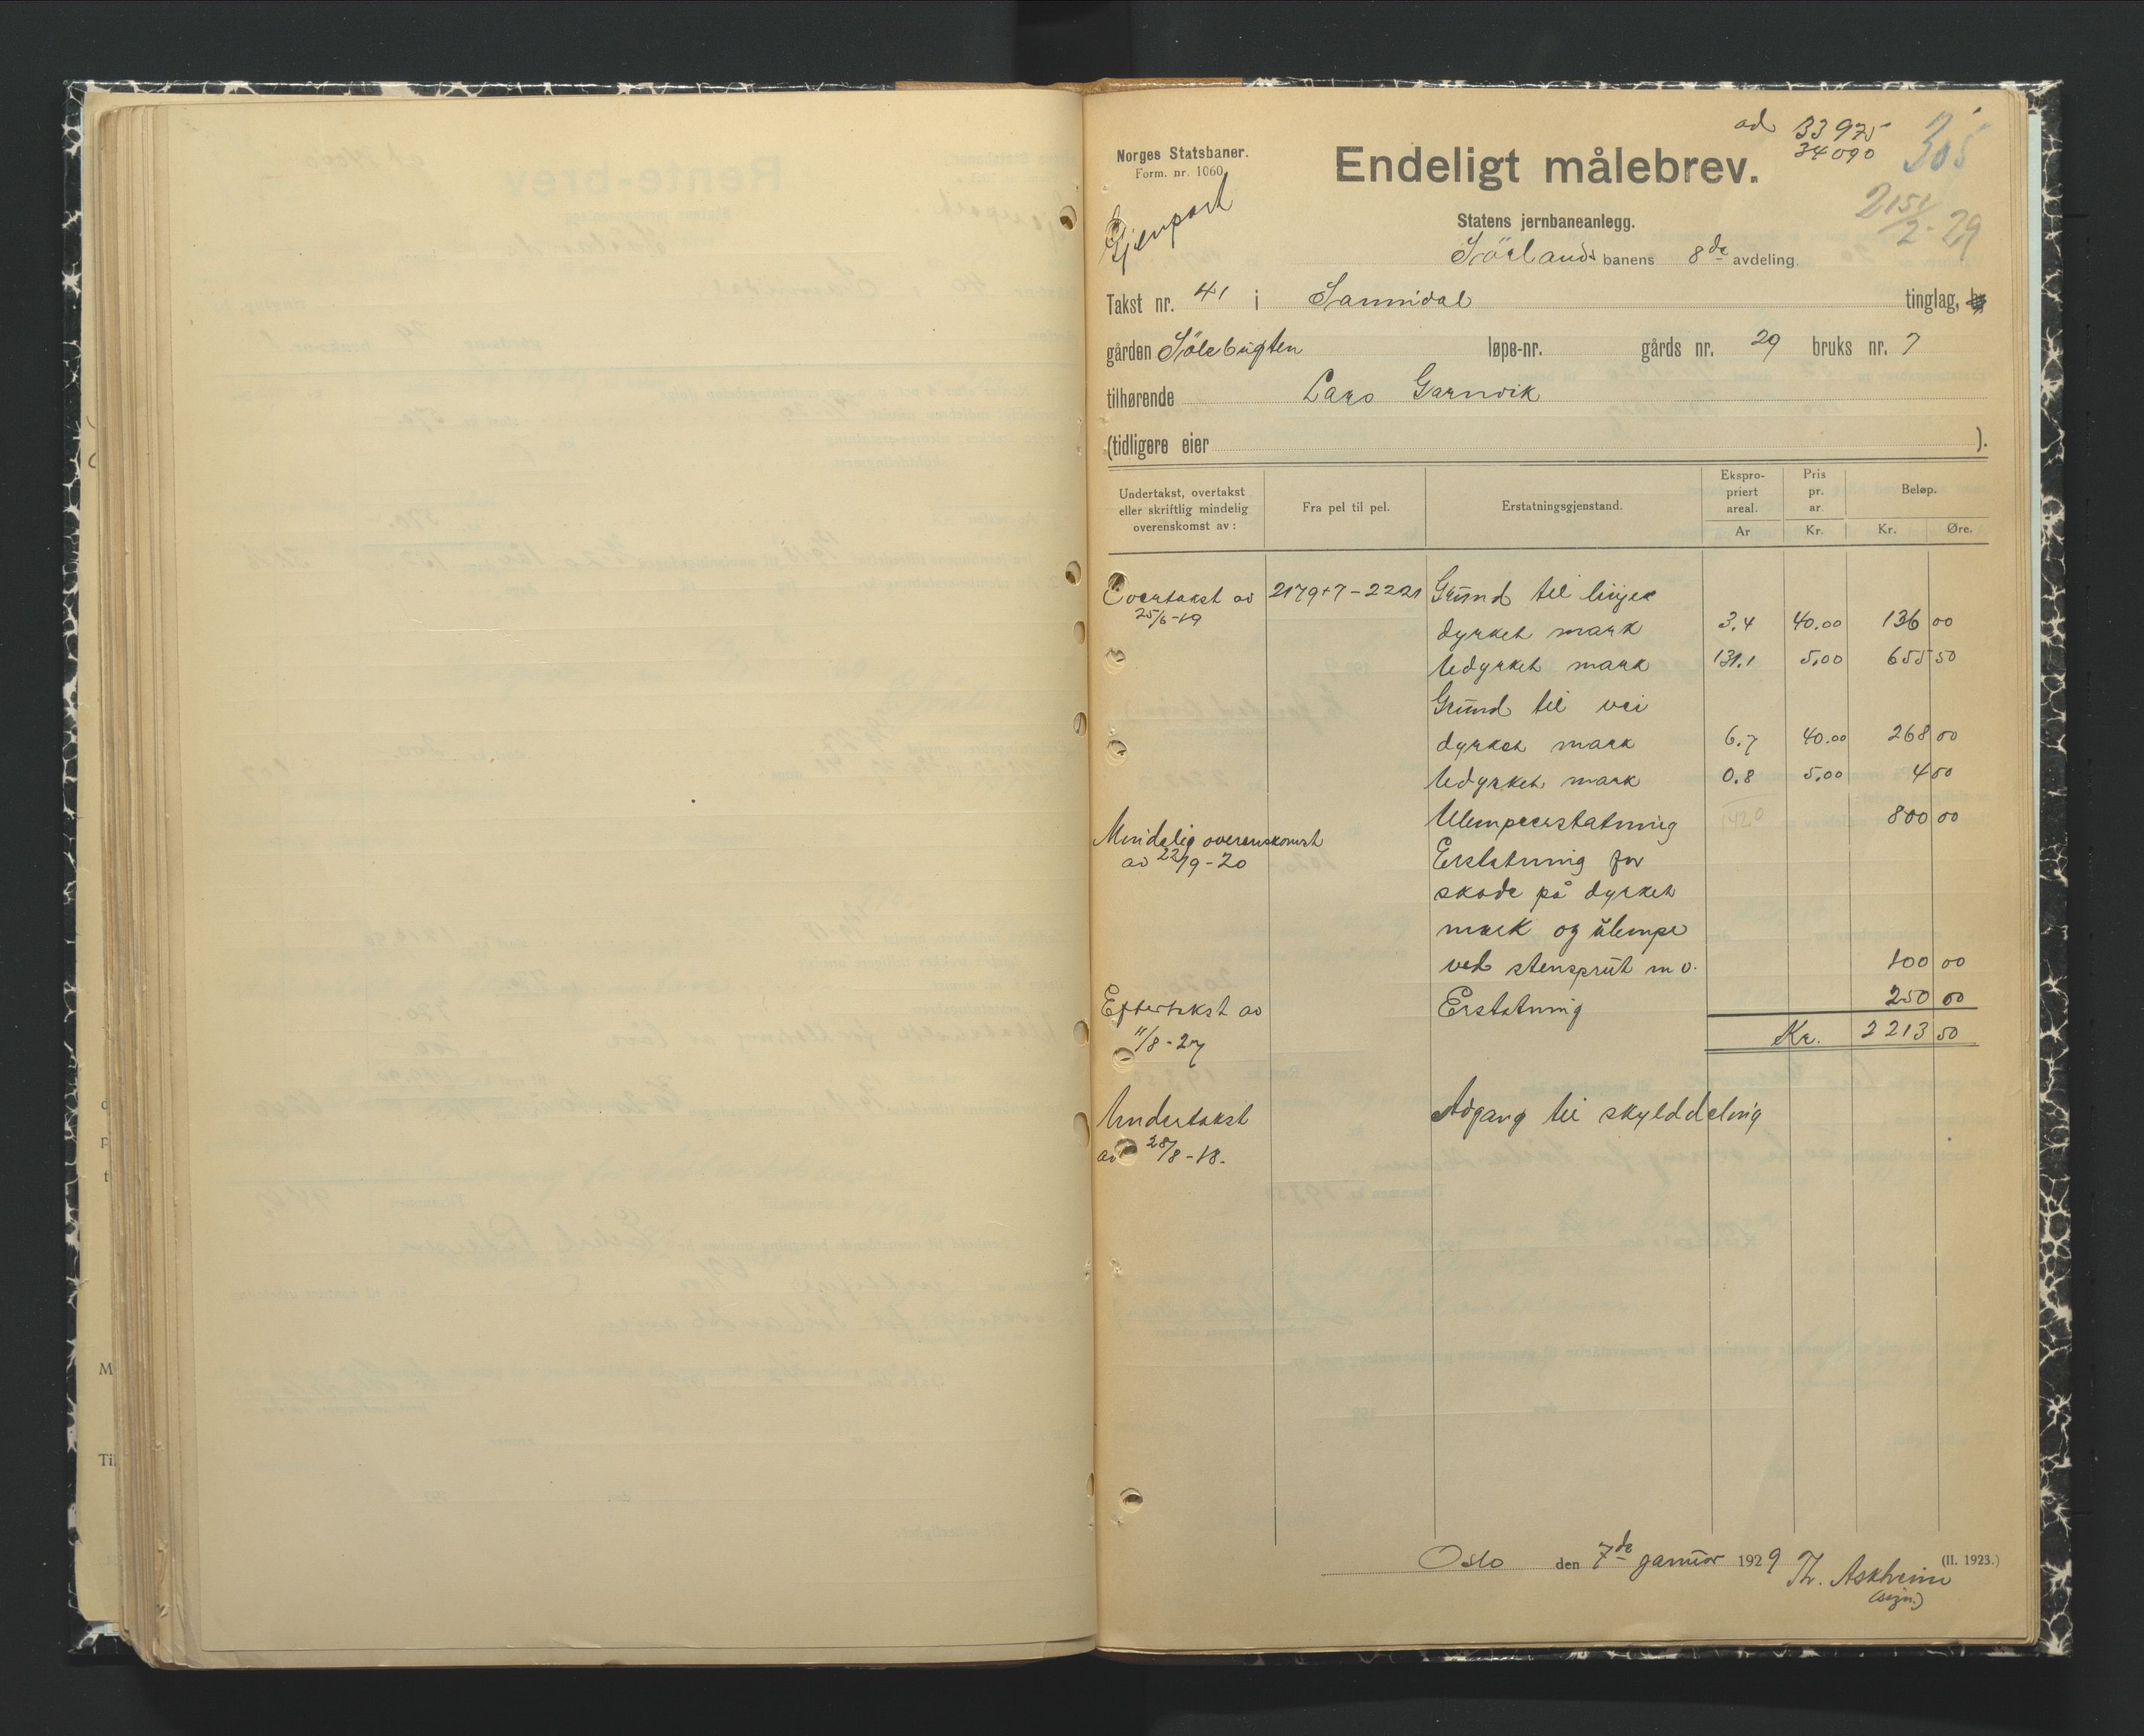 ad 33975
34090
305
Norges Statsbaner.
Form. nr. 1060
Gjenpart
Endeligt målebrev.
2151/2-29
Statens jernbaneanlegg.
Sörlands banens 8de avdeling.
Takst nr. 41 i Sannidal tinglag,
gården Sölebugten løpe-nr. gårds nr. 29 bruks nr. 7
tilhørende Lars Garnvik
(tidligere eier ).
Undertakst, overtakst eller skriftlig mindelig overenskomst av: Fra pel til pel. Erstatningsgjenstand. Ekspropriert areal. Ar Pris pr. ar. Kr. Beløp. Kr. Øre.
Overtakst av 2179+7-2221 Grund til linjen
25/6-19 dyrket mark 3.4 40.00 136 00
Udyrket mark 131.1 5.00 655 50
Grund til vei
dyrket mark 6.7 40.00 268 00
Udyrket mark 0.8 5.00 4 00
Ulempeerstatning 1420 800 00
Mindelig overenskomst
av 22/9-20 Erstatning for
skade på dyrket
mark og ulempe
ved stensprut m v. 100 00
Eftertakst av Erstatning 250 00
11/8-27 Kr. 2213 50
Undertakst Adgang til skylddeling
av 28/8-18.
Oslo den 7de januar 1929 Th. Askheim
(sign.)
(II. 1923.)
M
Til